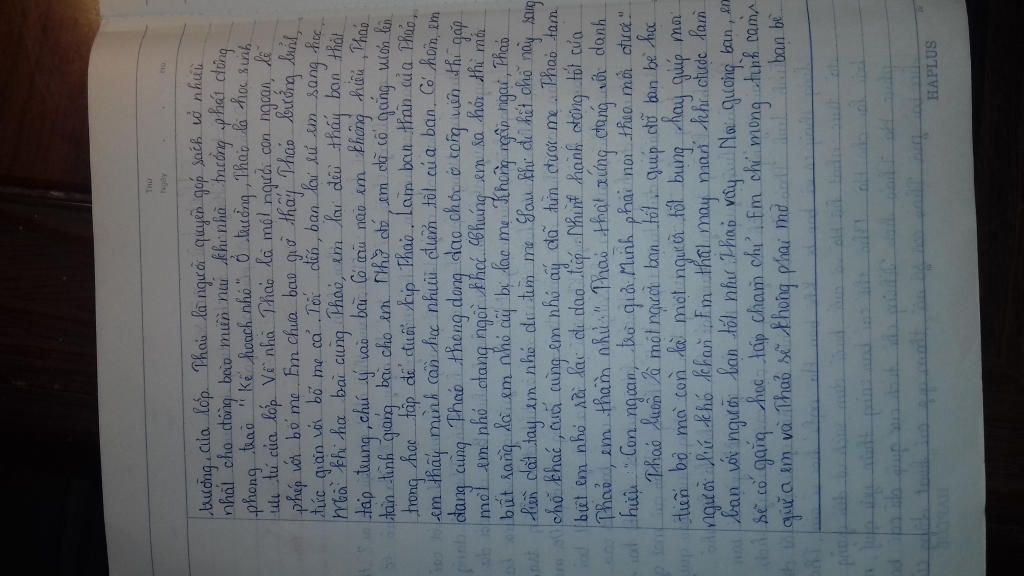 Thứ
Ngày
No.
trưởng của lớp. Thảo là người quyên góp sách vở nhiều
nhất cho đồng bào miền núi khi nhà trường phát động
phong trào "Kế hoạch nhỏ". Ở trường, Thảo là học sinh
ưu tú của lớp. Về nhà Thảo là một người con ngoan, lễ
phép với bố mẹ. Em chưa bao giờ thấy Thảo bướng bỉnh,
tức giận với bố mẹ cả. Tối đến, bạn lại sư em sang học.
Mỗi khi học bài cùng Thảo, em lại đãi thấy bạn thật
tập trung, chú ý vào bài. Có câu nào em không hiểu, Thảo
tận tình giảng bài cho em. Nhờ đó, em đã cố gắng vươn lên
trong học tập để đuổi kịp Thảo. Làm bạn thân của Thảo,
em thấy mình cần học nhiều điểm tốt của bạn. Có hôm, em
đang cùng Thảo thong dong dạo chơi ở công viên thì gặp
một em nhỏ đang ngồi khóc. Chúng em sa hỏi thì mới
biết rằng là em nhỏ ấy bị lạc mẹ. Không ngần ngại, Thảo
liền dắt tay em nhỏ đi tìm mẹ. Sau khi đi hết chỗ này sang
chỗ khác, cuối cùng em nhỏ ấy đã tìm được mẹ. Thảo tạm
biệt em nhỏ rồi lại đi dạo tiếp. Một hành động tốt của
Thảo, em thầm nhủ: "Thảo thật xứng đáng với danh
hiệu "Con ngoan, trò giỏi. Mình phải noi theo mới được".
Thảo luôn là một người bạn tốt, giúp đỡ bạn bè học
tiến bộ mà còn là một người tốt bụng hay giúp mọi
người lúc khó khăn. Em thật may mắn khi được làm
bạn với người bạn tốt như Thảo vậy. Noi gương bạn, em
sẽ cố gắng học tập chăm chỉ. Em chỉ mong tình cảm
giữa em và Thảo sẽ không phai mờ.
bạn bè
HAPLUS